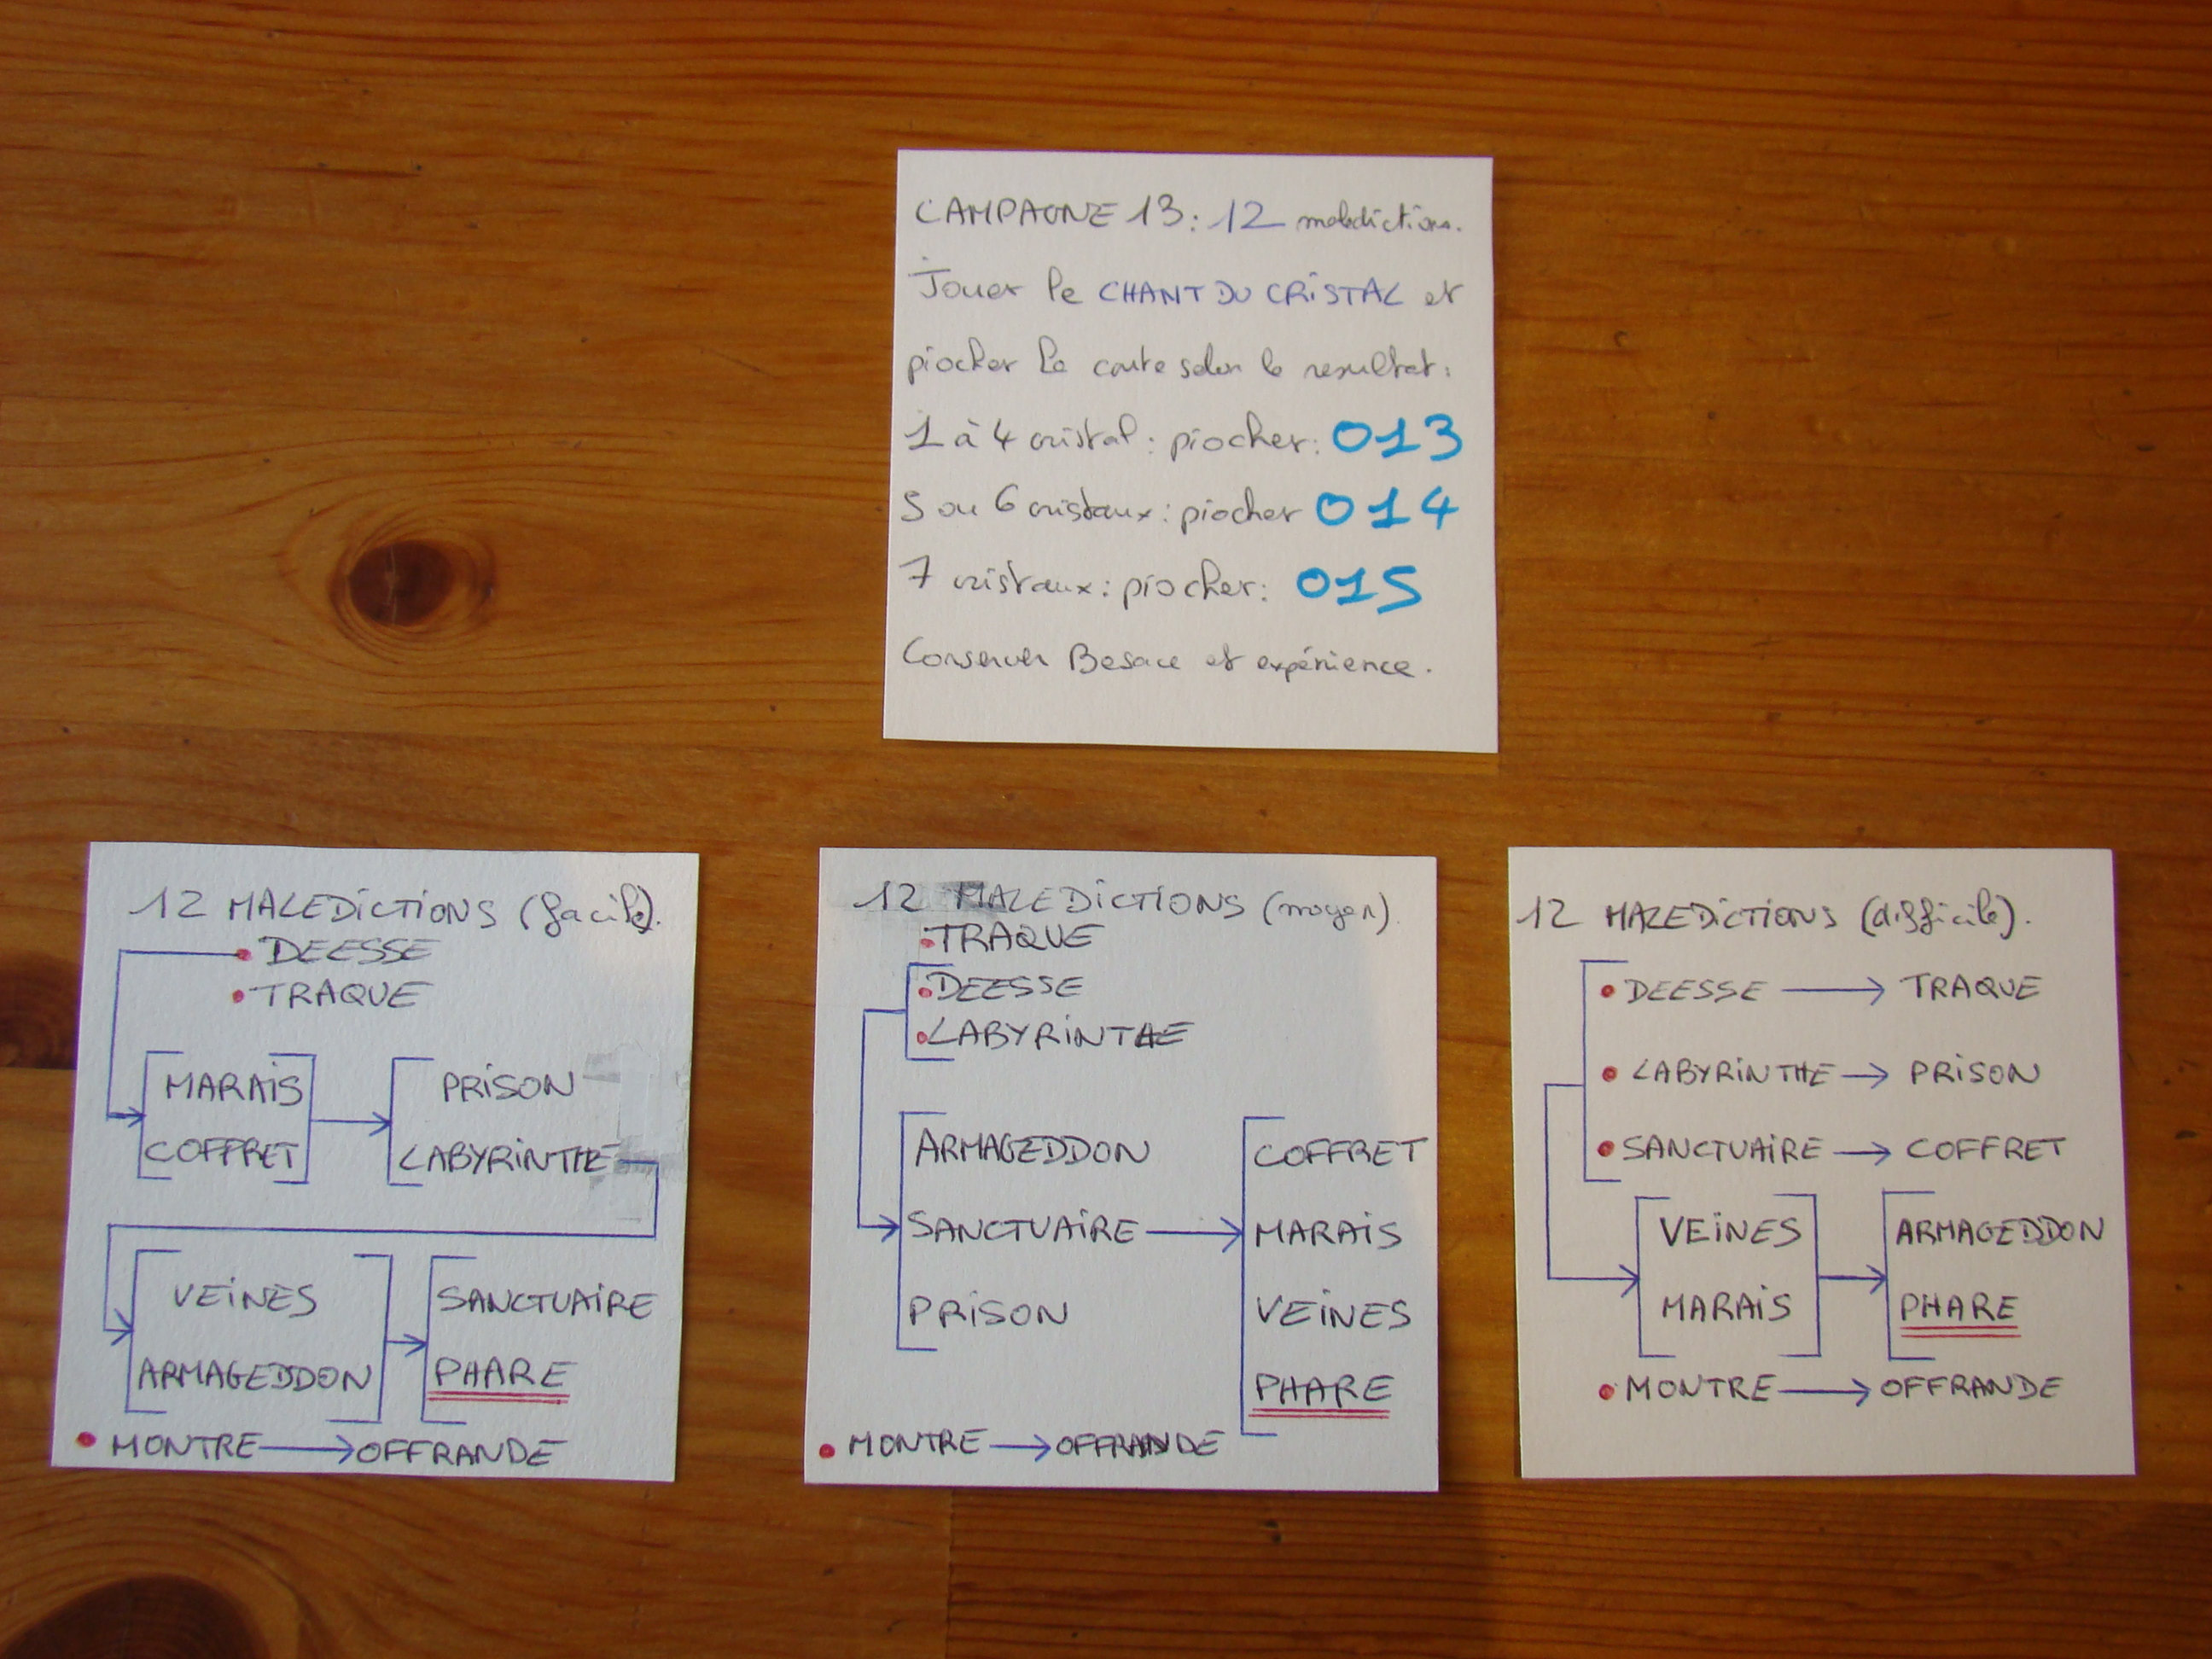 CAMPAGNE 13: 12 maledictions.
Jouer le CHANT DU CRiSTAL et
piocher la carte selon le resultat:
1 à 4 cristal: piocher: 013
5 ou 6 cristaux: piocher 014
7 cristaux: piocher: 015
Conserver Besace et expérience.
12 MALEDiCTiONS (facile).
• DEESSE
• TRAQUE
MARAiS
COFFRET
PRiSON
LABYRiNTHE
VEiNES
ARMAGEDDON
SANCTUAiRE
PHARE
• MONTRE → OFFRANDE
12 MALEDiCTiONS (moyen).
• TRAQUE
• DEESSE
• LABYRiNTHE
ARMAGEDDON
SANCTUAiRE →
PRiSON
COFFRET
MARAiS
VEiNES
PHARE
• MONTRE → OFFRANDE
12 MALEDiCTiONS (difficile).
• DEESSE → TRAQUE
• LABYRiNTHE → PRiSON
• SANCTUAiRE → COFFRET
VEiNES
MARAiS
ARMAGEDDON
PHARE
• MONTRE → OFFRANDE